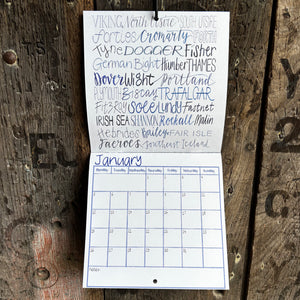 VIKING, North Utsire SOUTH UTSIRE
Forties Cromarty Forth
Tyne DOGGER Fisher
German Bight Humber THAMES
Dover Wight Portland
PLYMOUTH Biscay TRAFALGAR
FitzRoy Sole Lundy Fastnet
IRISH SEA SHANNON Rockall Malin
Hebrides Bailey FAIR ISLE
Faeroes Southeast Iceland
January
Monday Tuesday Wednesday Thursday Friday Saturday Sunday
NOTES: